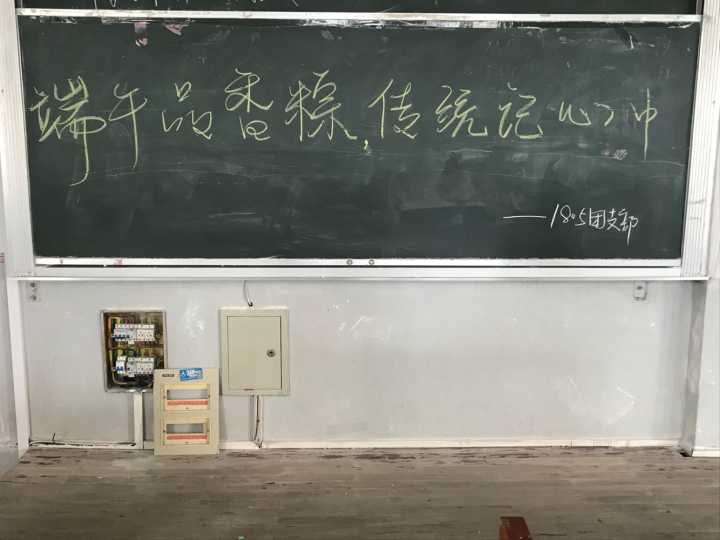 端午品香粽,传统记心中
——1805团支部